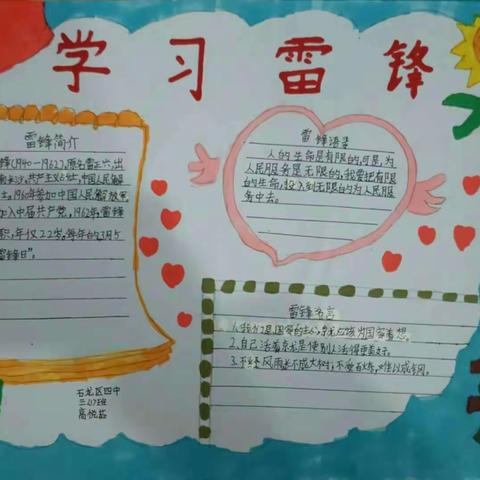 学习雷锋
雷锋简介
锋(1940-1962),原名雷正兴,出
南长沙,共产主义战士,中国人民解
士。1960年参加中国人民解放军,
加入中国共产党,1962年雷锋
职,年仅22岁。每年的3月5
雷锋日"。
雷锋语录
人的生命是有限的,可是,为
人民服务是无限的,我要把有限
的生命,投入到无限的为人民服
务中去。
雷锋名言
1.我们是国家的主人,应该处处为国家着想。
2.自己活着就是使别人活得更美好。
3.不经风雨,长不成大树;不受百炼,难以成钢。
石龙区四中
三4班
高悦茹